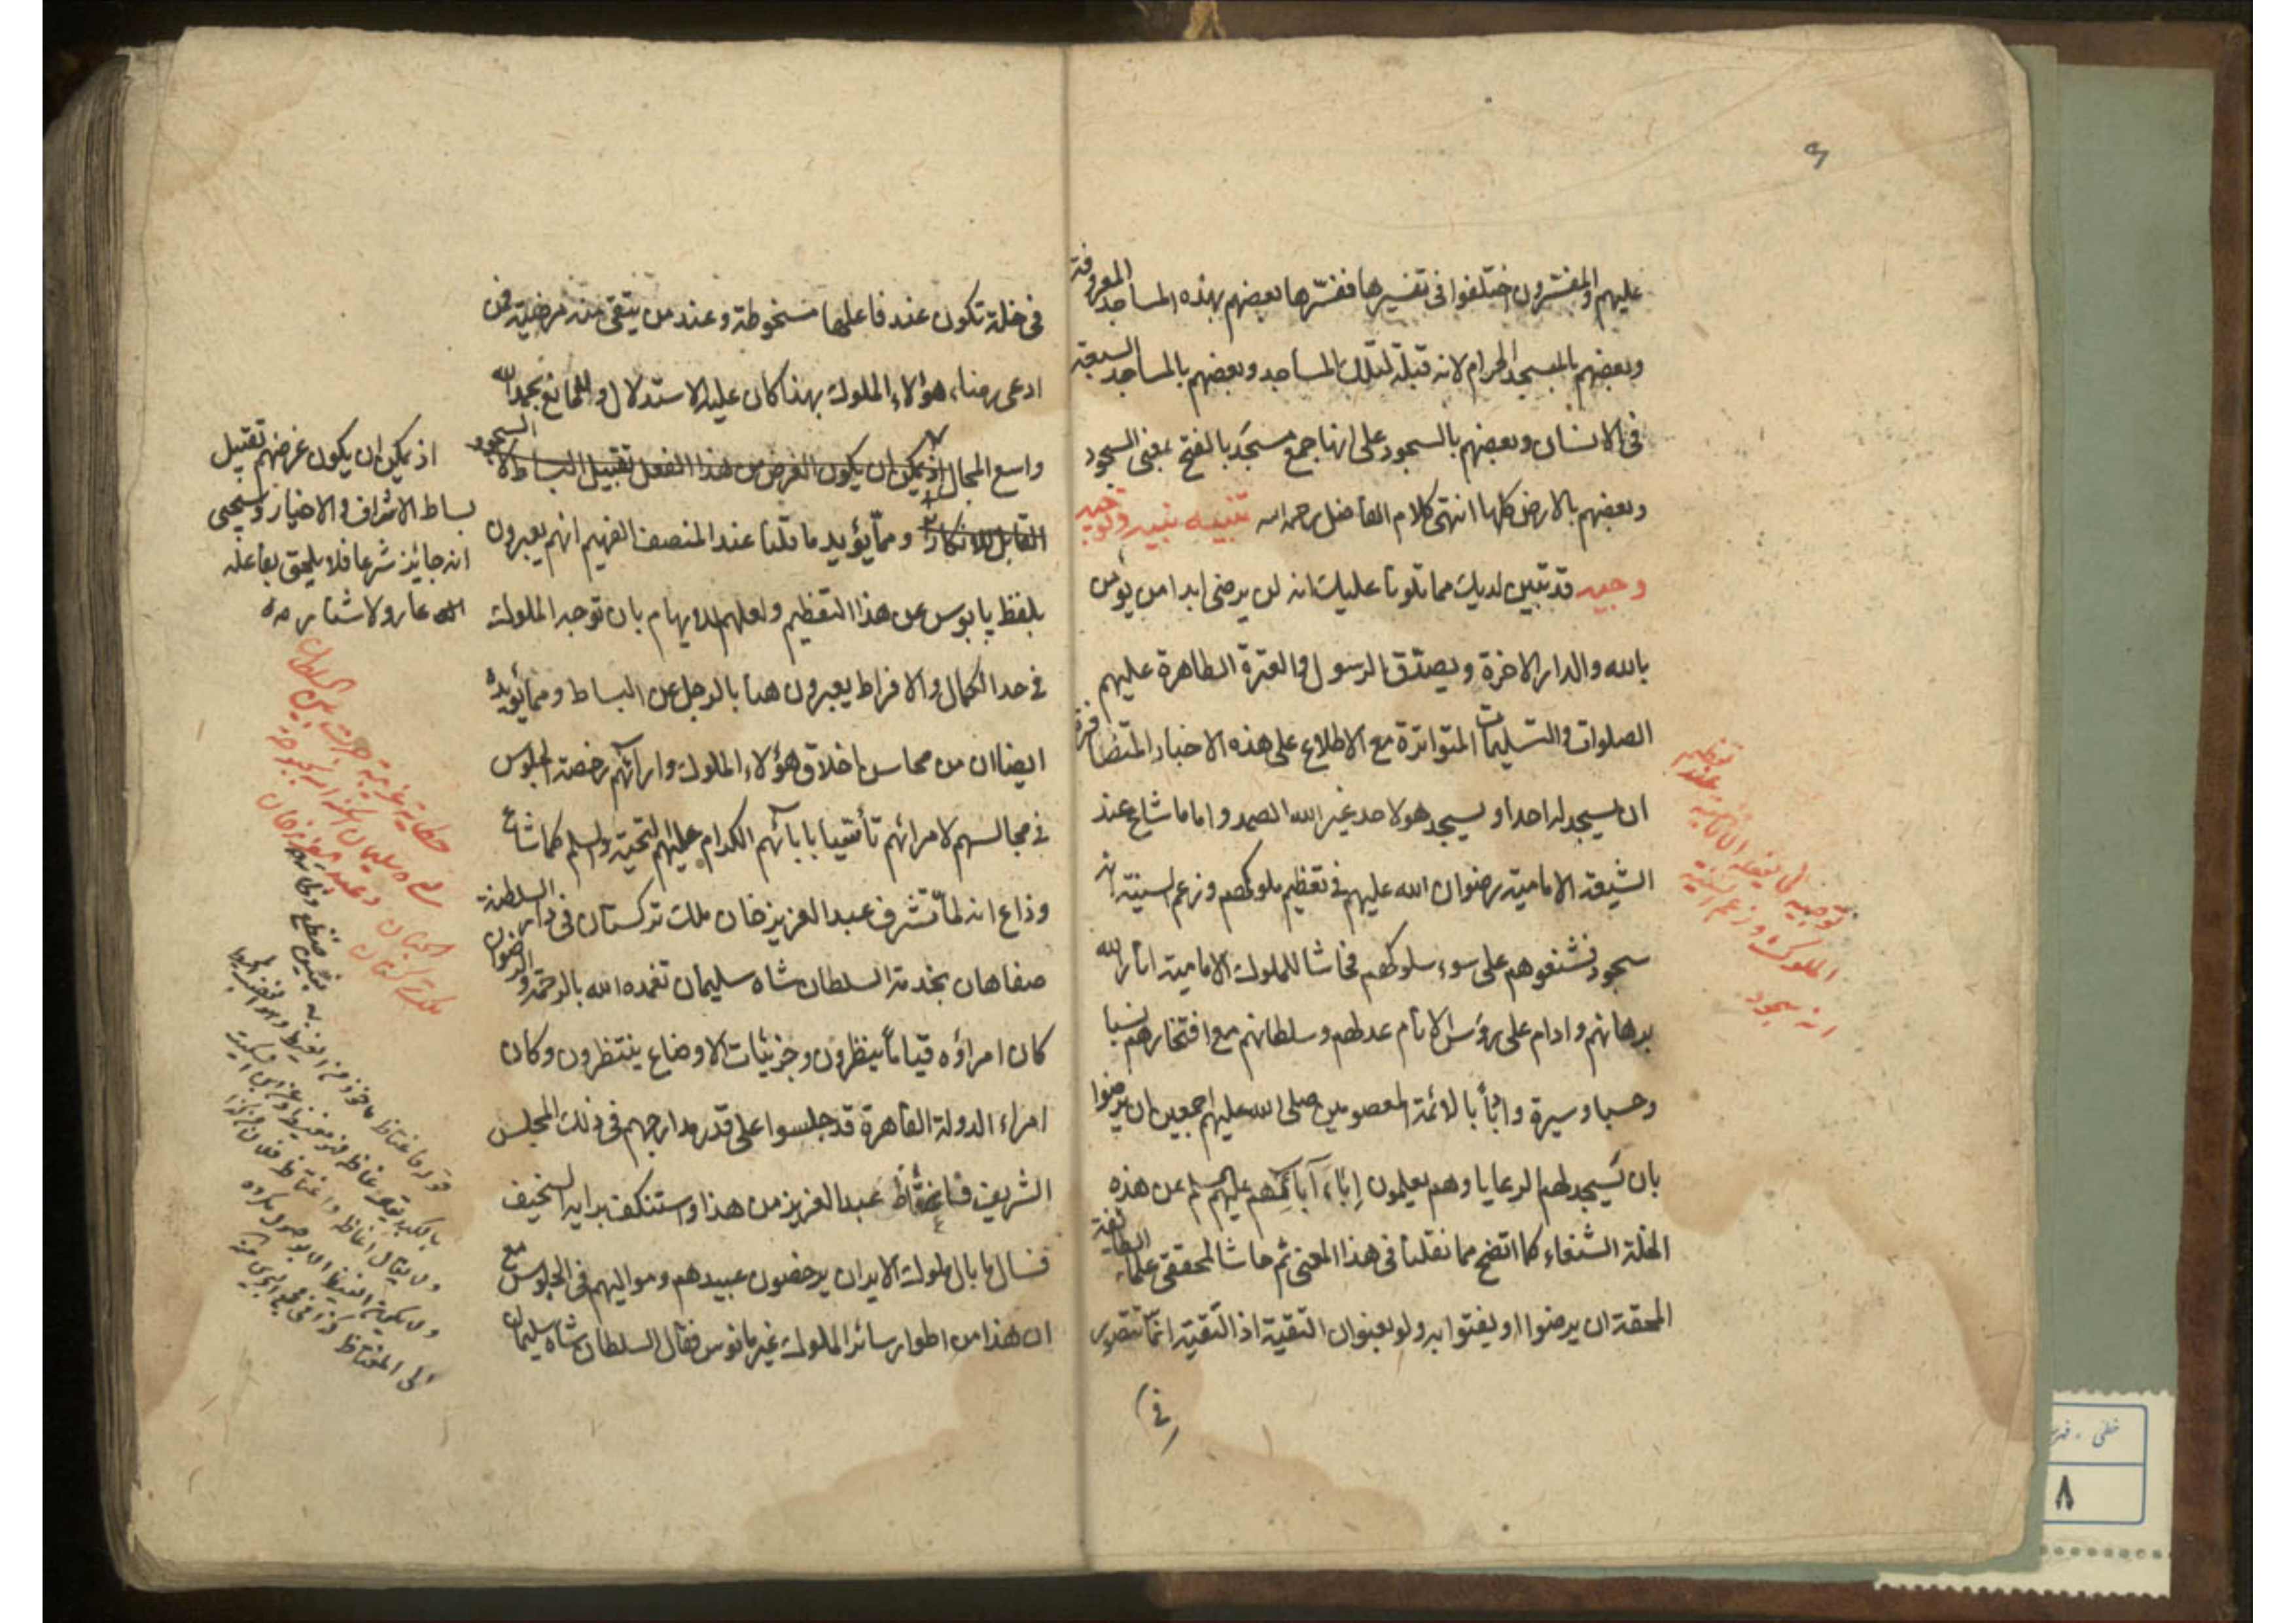 عليهم والمفسرون اختلفوا فى تفسيرها ففسّرها بعضهم بهذه المساجد المعروفة
وبعضهم بالمسجد الحرام لانه قبلة لتلك المساجد وبعضهم بالمساجد السبعة
فى الانسان وبعضهم بالسجود على انها جمع مسجَد بالفتح بمعنى السجود
وبعضهم بالارض كلها انتهى كلام الفاضل رحمه الله تنبيه نبيه وتوجيه
وجيه قد تبين لديك مما تلونا عليك انه لن يرضى ابدا من يؤمن
بالله والدار الاخرة ويصدّق الرسول والعترة الطاهرة عليهم
الصلوات والتسليمات المتواترة مع الاطلاع على هذه الاخبار المتضافرة
ان يسجد له احد او يسجد هو لاحد غير الله الصمد واما ما شاع عند
الشيعة الامامية رضوان الله عليهم فى تعظيم ملوكهم وزعم السنية انه
سجود فشنعوهم على سوء سلوكهم فحاشا للملوك الامامية انار الله
برهانهم وادام على رؤس الانام عدلهم وسلطانهم مع افتخارهم نسبا
وحسبا وسيرة وابًا بالائمة المعصومين صلى الله عليهم اجمعين ان يرضوا
بان يَسجد لهم الرعايا وهم يعلمون إباءَ آبائهم عليهم السلم عن هذه
الخلة الشنعاء كما اتضح مما نقلنا فى هذا المعنى ثم حاشا لمحققى علماء الطايفة
المحقة ان يرضوا او يفتوا به ولو بعنوان التقية اذ التقية انما تتصور
(فى)
توجيه لما يفعله الامامية عند تعظيم
الملوك وزعم السنية
انه سجود
فى خلة تكون عند فاعلها مسخوطة وعند من يتقى منه مرضية فمن
ادعى رضاء هؤلاء الملوك بهذا كان عليه الاستدلال وللمانع بحمد الله
واسع المجال اذ يمكن ان يكون الغرض من هذا الفعل تقبيل البساط لا السجود
القابل للانكار ومما يؤيد ما قلنا عند المنصف الفهيم انهم يعبرون
بلفظ پابوس عن هذا التعظيم ولعلهم لايهام بان توجه الملوك
فى حد الكمال والافراط يعبرون هنا بالرجل عن البساط ومما يؤيده
ايضا ان من محاسن اخلاق هؤلاء الملوك وارائهم رخصة الجلوس
فى مجالسهم لامرائهم تأسّيا بابائهم الكرام عليهم التحية والسلم كما شاع
وذاع انه لمّا تشرف عبد العزيز خان ملك تركستان فى دار السلطنة
صفاهان بخدمة السلطان شاه سليمان تغمده الله بالرحمة والرضوان
كان امراؤه قياماً ينظرون وجزئيات الاوضاع ينتظرون وكان
امراء الدولة القاهرة قد جلسوا على قدر مدارجهم فى ذلك المجلس
الشريف فاغتاظ عبد العزيز من هذا واستنكف برايه السخيف
فسال ما بال ملوك الايران يرخصون عبيدهم ومواليهم فى الجلوس مع
ان هذا من اطوار سائر الملوك غير مانوس فقال السلطان شاه سليمان
اذ يمكن ان يكون غرضهم تقبيل
بساط الاشراف والاخيار وسيجئ
انه جائز شرعا فلا يلحق بفاعله
عار ولا شنار منه
حكاية غريبة جرت بين السلطان
شاه سليمان اسكنه الله بحبوحة
الجنان وعبد العزيز خان
ملك تركستان